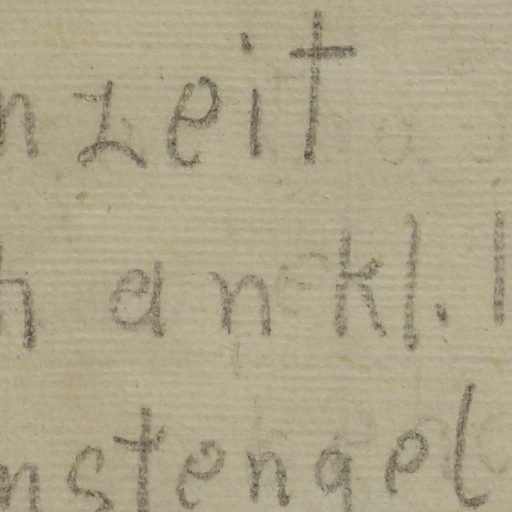 nzeit
h an kl. l
nstengel